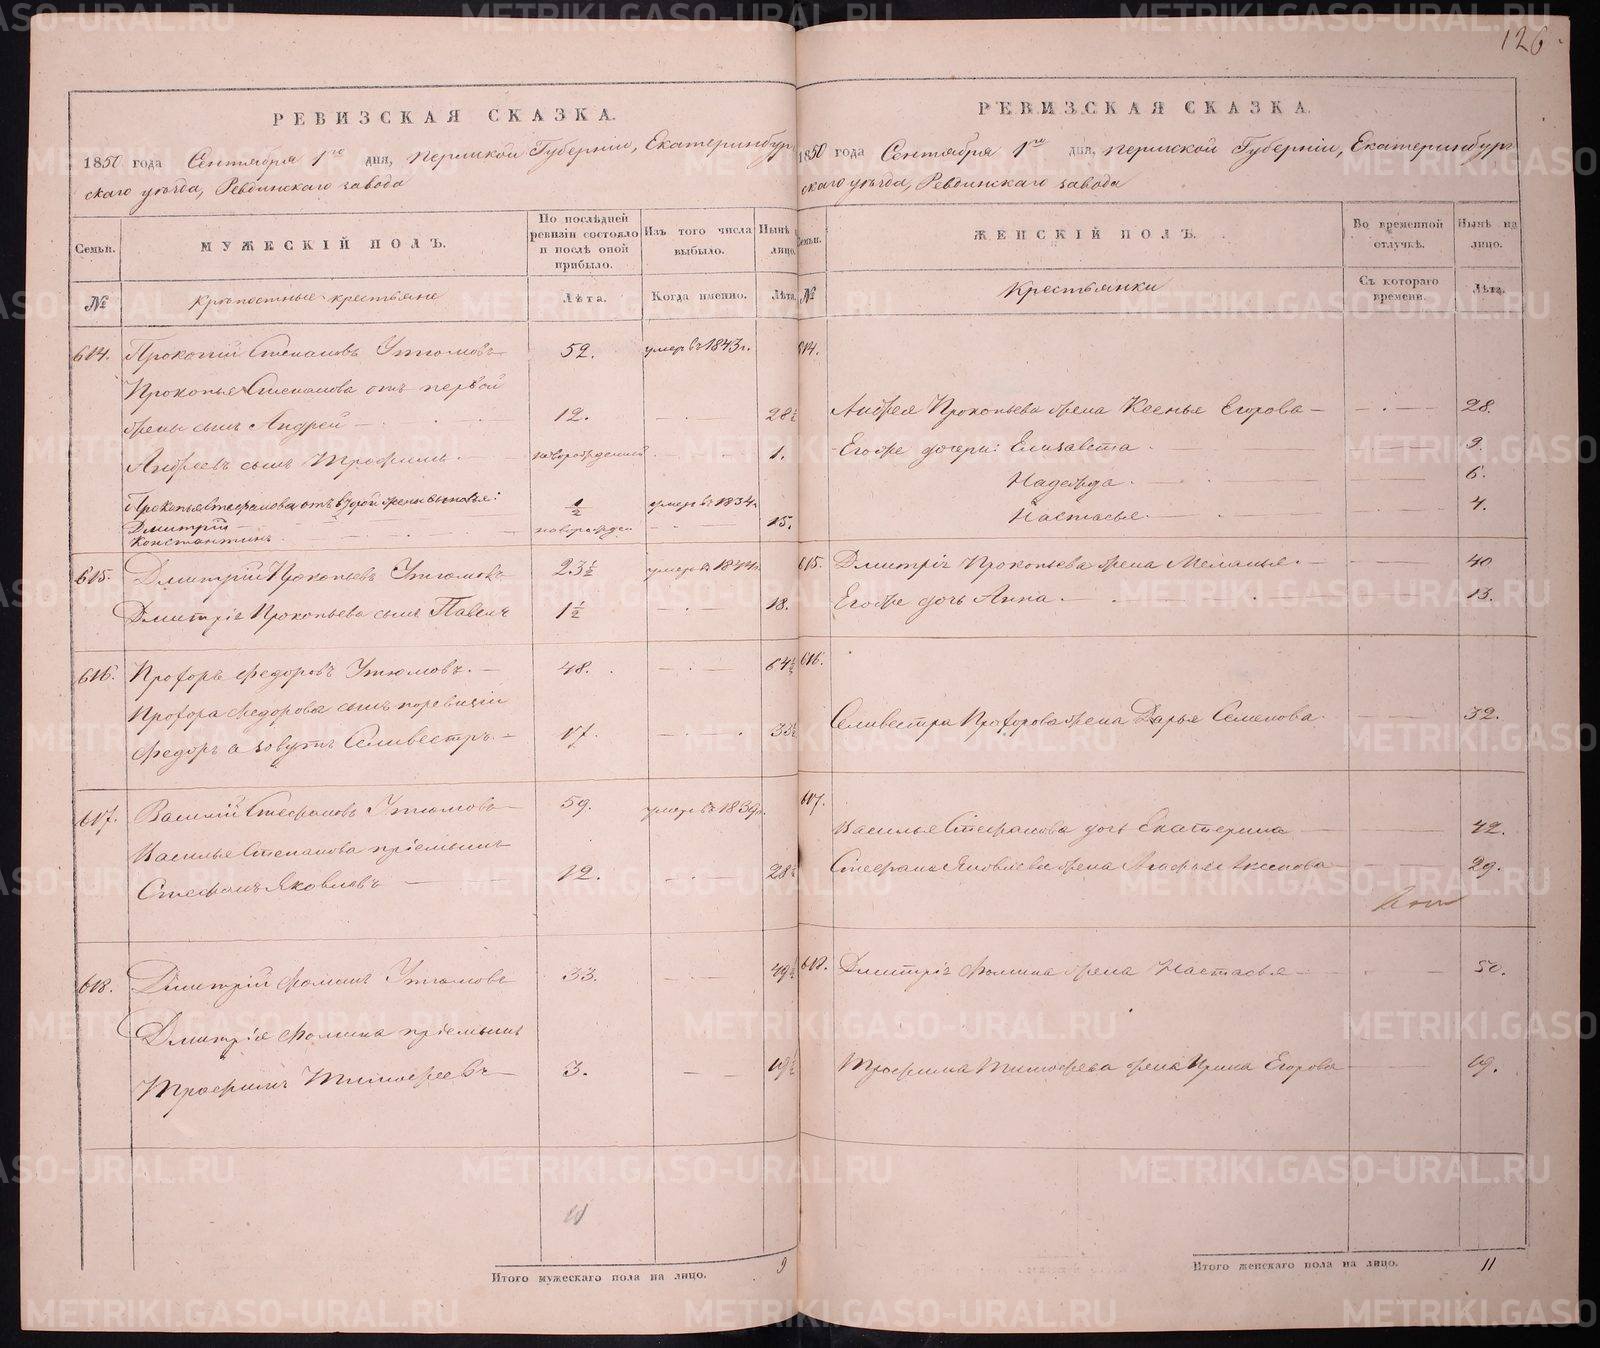 126
РЕВИЗСКАЯ СКАЗКА.
1850 года Сентября 1го дня, Пермской Губерніи, Екатеринбург
скаго уѣзда, Ревдинскаго завода
Семьи.
МУЖЕСКІЙ ПОЛЪ.
По послѣдней
ревизіи состояло
и послѣ оной
прибыло.
Изъ того числа
выбыло.
Нынѣ
лицо.
№
Крѣпостные крестьяне
Лѣта.
Когда именно.
Лѣта.
614. Прокопій Степановъ Утюмовъ 59. умеръ въ 1843 г.
Прокопья Степанова отъ первой
жены сынъ Андрей 12. 28½
Андреевъ сынъ Трофимъ. новорожденный 1.
Прокопья Стефанова отъ второй жены сыновья:
Дмитрій ½ умеръ въ 1834.
Константинъ. новорожден 15.
615. Дмитрій Прокопьевъ Утюмовъ 23½ умеръ въ 1844 г.
Дмитрія Прокопьева сынъ Павелъ 1½ 18.
616. Прохоръ Федоровъ Утюмовъ. 48. 64½
Прохора Федорова сынъ по ревизіи
Федоръ а зовутъ Селивестръ. 17. 33½
617. Василій Стефановъ Утюмовъ 59. умеръ въ 1839 г.
Василья Степанова пріемышъ
Стефанъ Яковлевъ 12. 28½
618. Дмитрій Фоминъ Утюмовъ 33. 49½
Дмитрія Фомина пріемышъ
Трофимъ Тимофеевъ 3. 19½
Итого мужескаго пола на лицо. 9
РЕВИЗСКАЯ СКАЗКА.
1850 года Сентября 1го дня, Пермской Губерніи, Екатеринбург
скаго уѣзда, Ревдинскаго завода
Семьи.
ЖЕНСКІЙ ПОЛЪ.
Во временной
отлучкѣ.
Нынѣ на
лицо.
№
Крестьянки
Съ котораго
времени.
Лѣта.
614.
Андрея Прокопьева жена Ксенья Егорова 28.
Его же дочери: Елизавета 9.
Надежда 6.
Настасья 4.
615. Дмитрія Прокопьева жена Меланья. 40
Его же дочь Анна. 13.
616.
Селивестра Прохорова жена Дарья Семенова. 32.
617.
Василья Стефанова дочь Екатерина 42.
Стефана Яковлева жена Агафья Аксенова 29.
618. Дмитрія Фомина жена Настасья 50.
Трофима Тимофеева жена Ирина Егорова 19.
Итого женскаго пола на лицо. 11
METRIKI.GASO-URAL.RU